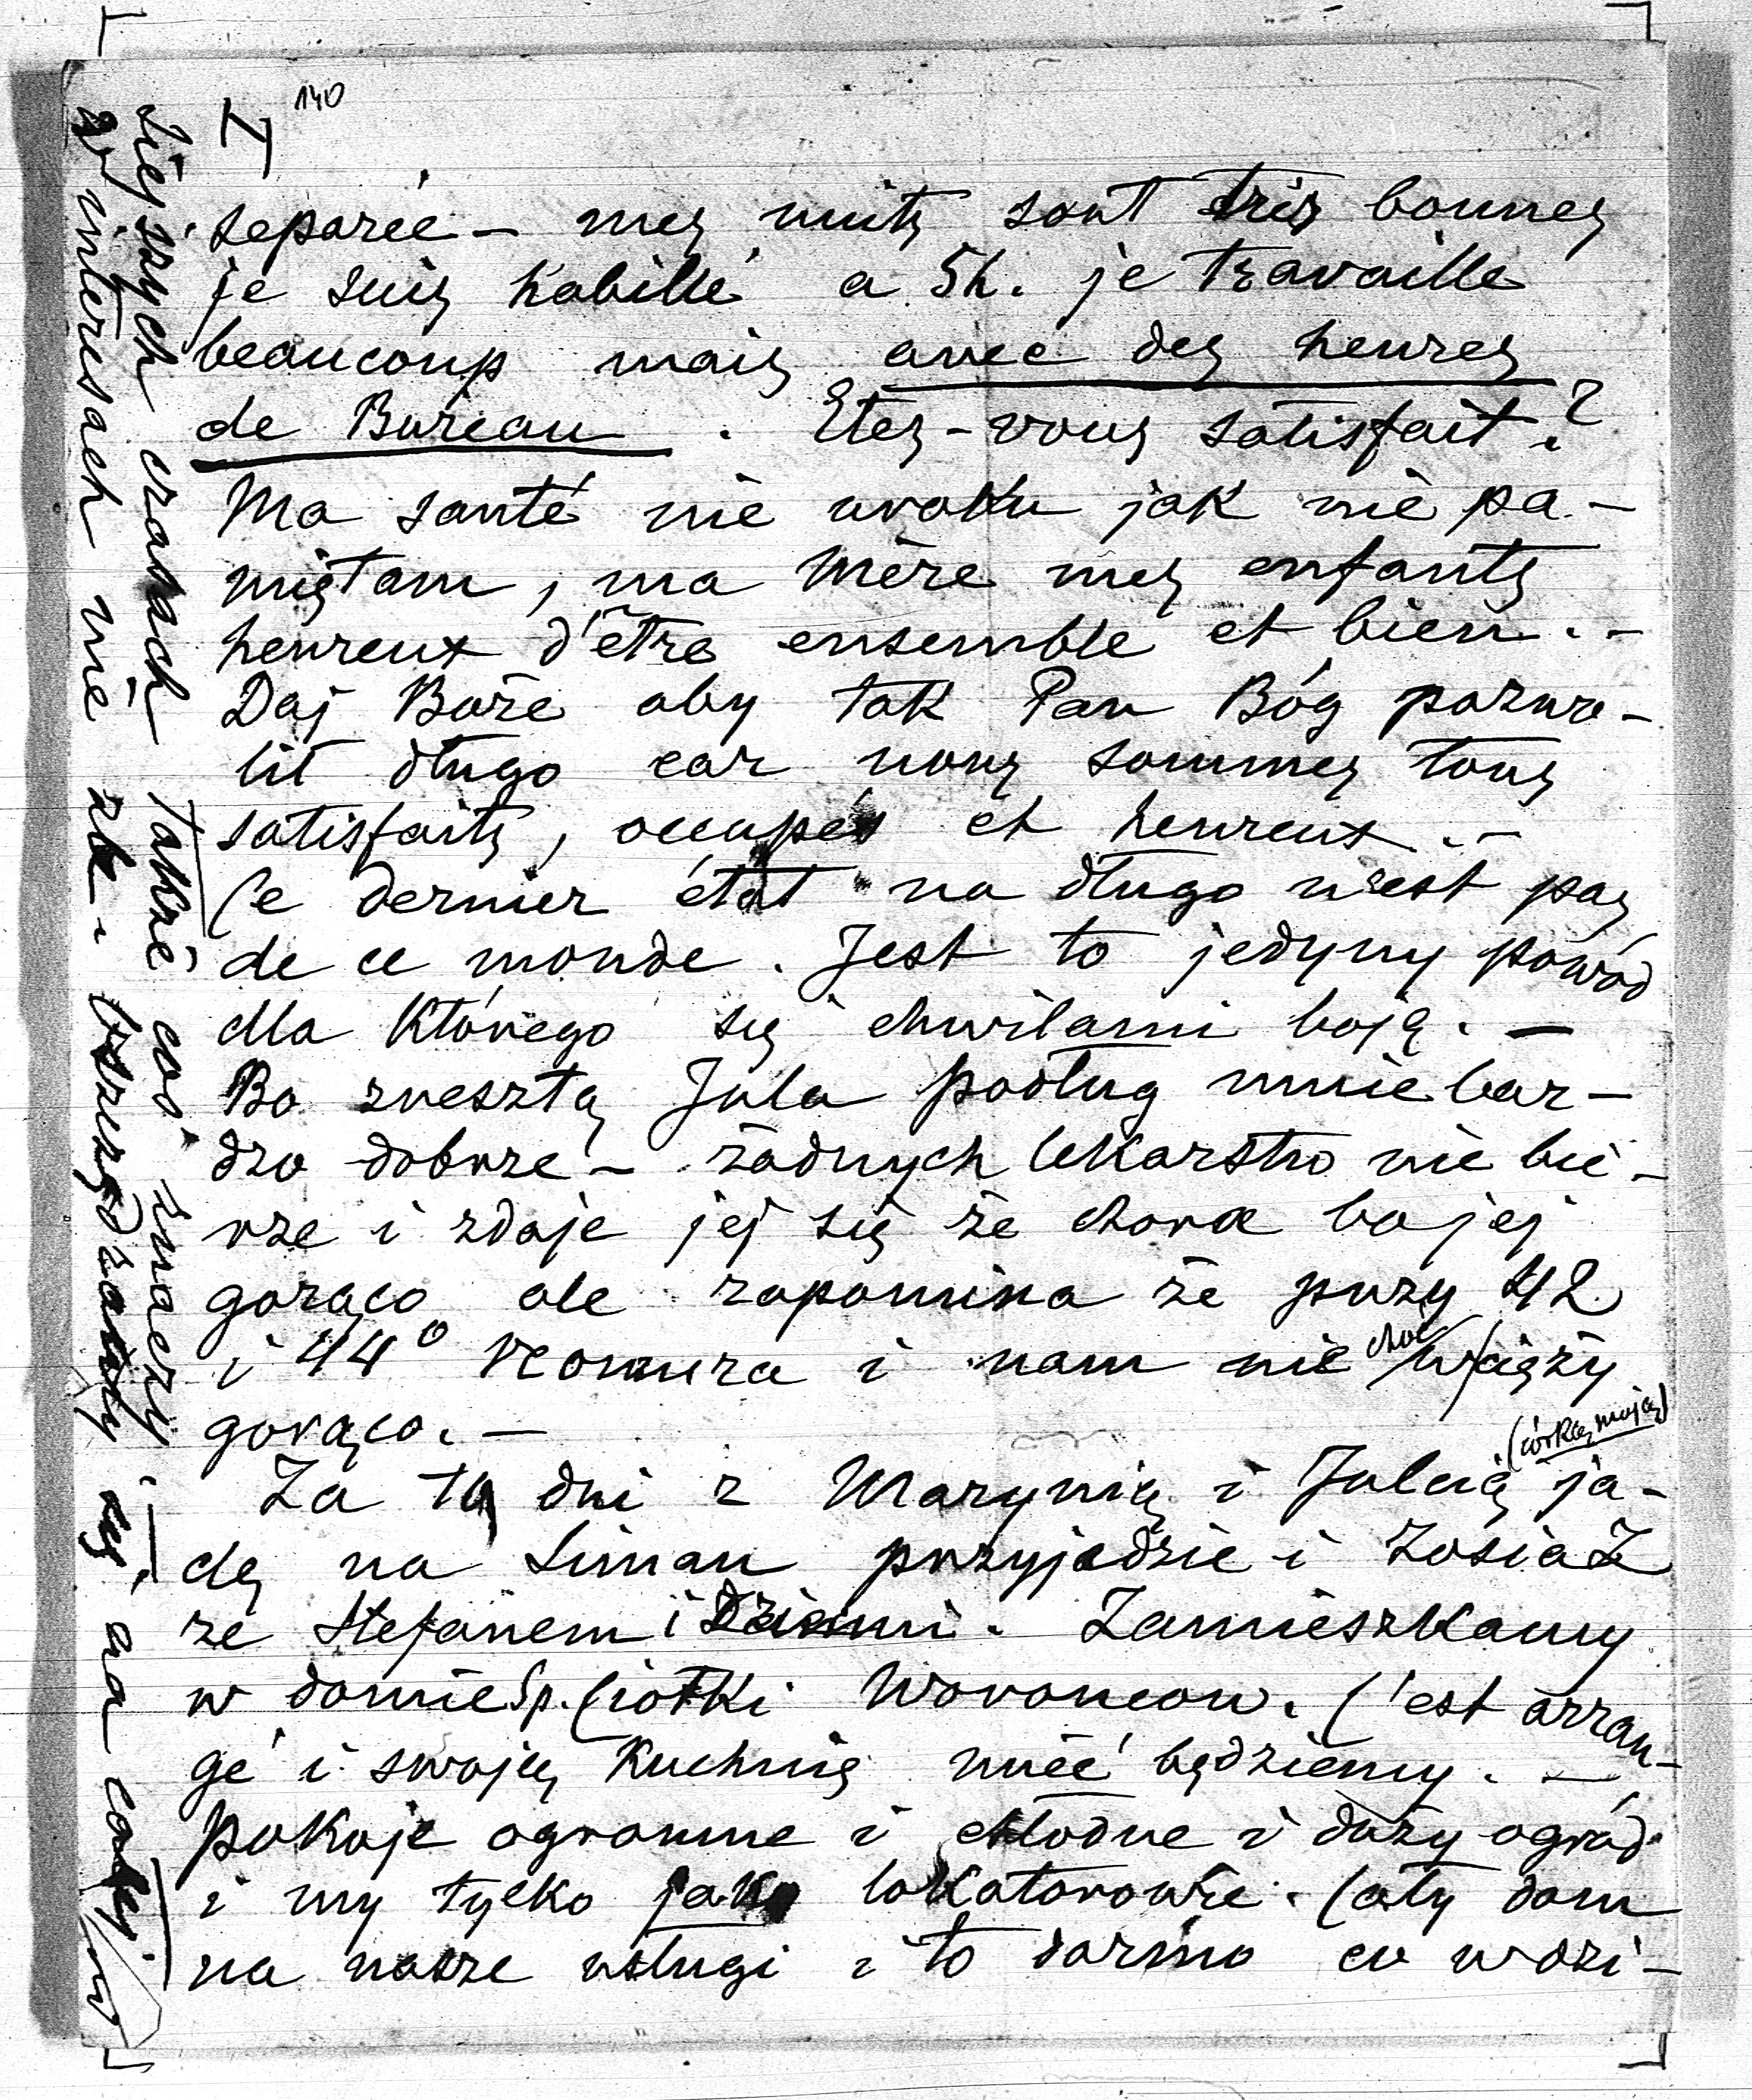 140
I
separée – mes nuits sont très bonnes
je suis habillé a 5h. je travaille
beaucoup mais avec des heures
de Bureau. Etes-vous satisfait?
Ma santé nie uroku jak nie pa-
miętam, ma Mère mes enfants
heureux d'être ensemble et bien. –
Daj Boże aby tak Pan Bóg pozwo-
lił długo car nous sommes tous
satisfaits, occupés et heureux. –
Ce dernier état na długo n'est pas
de ce monde. Jest to jedyny powód
dla którego się chwilami boję. –
Bo zresztą Jula podług mnie bar-
dzo dobrze – żadnych lekarstw nie bie-
rze i zdaje jej się że chora bo jej
gorąco ale zapomina że przy 42
i 44° Reomura i nam nie choć w ciąży
gorąco. –
(córką moją)
Za dni z Marynią i Julcią ja-
dę na Liman przyjedzie i Zosia Z
ze Stefanem i Dziećmi. Zamieszkamy
w domie Sp. Ciotki Woroncow. C'est arran-
gé i swoję Kuchnię mieć będziemy. –
pokoje ogromne i chłodne i duży ogród
i my tylko jako lokatorowie. Cały dom
na nasze usługi i to darmo co w dzi-
siejszych czasach także coś znaczy i na całej
w interesach nie źle i oszczędzamy się